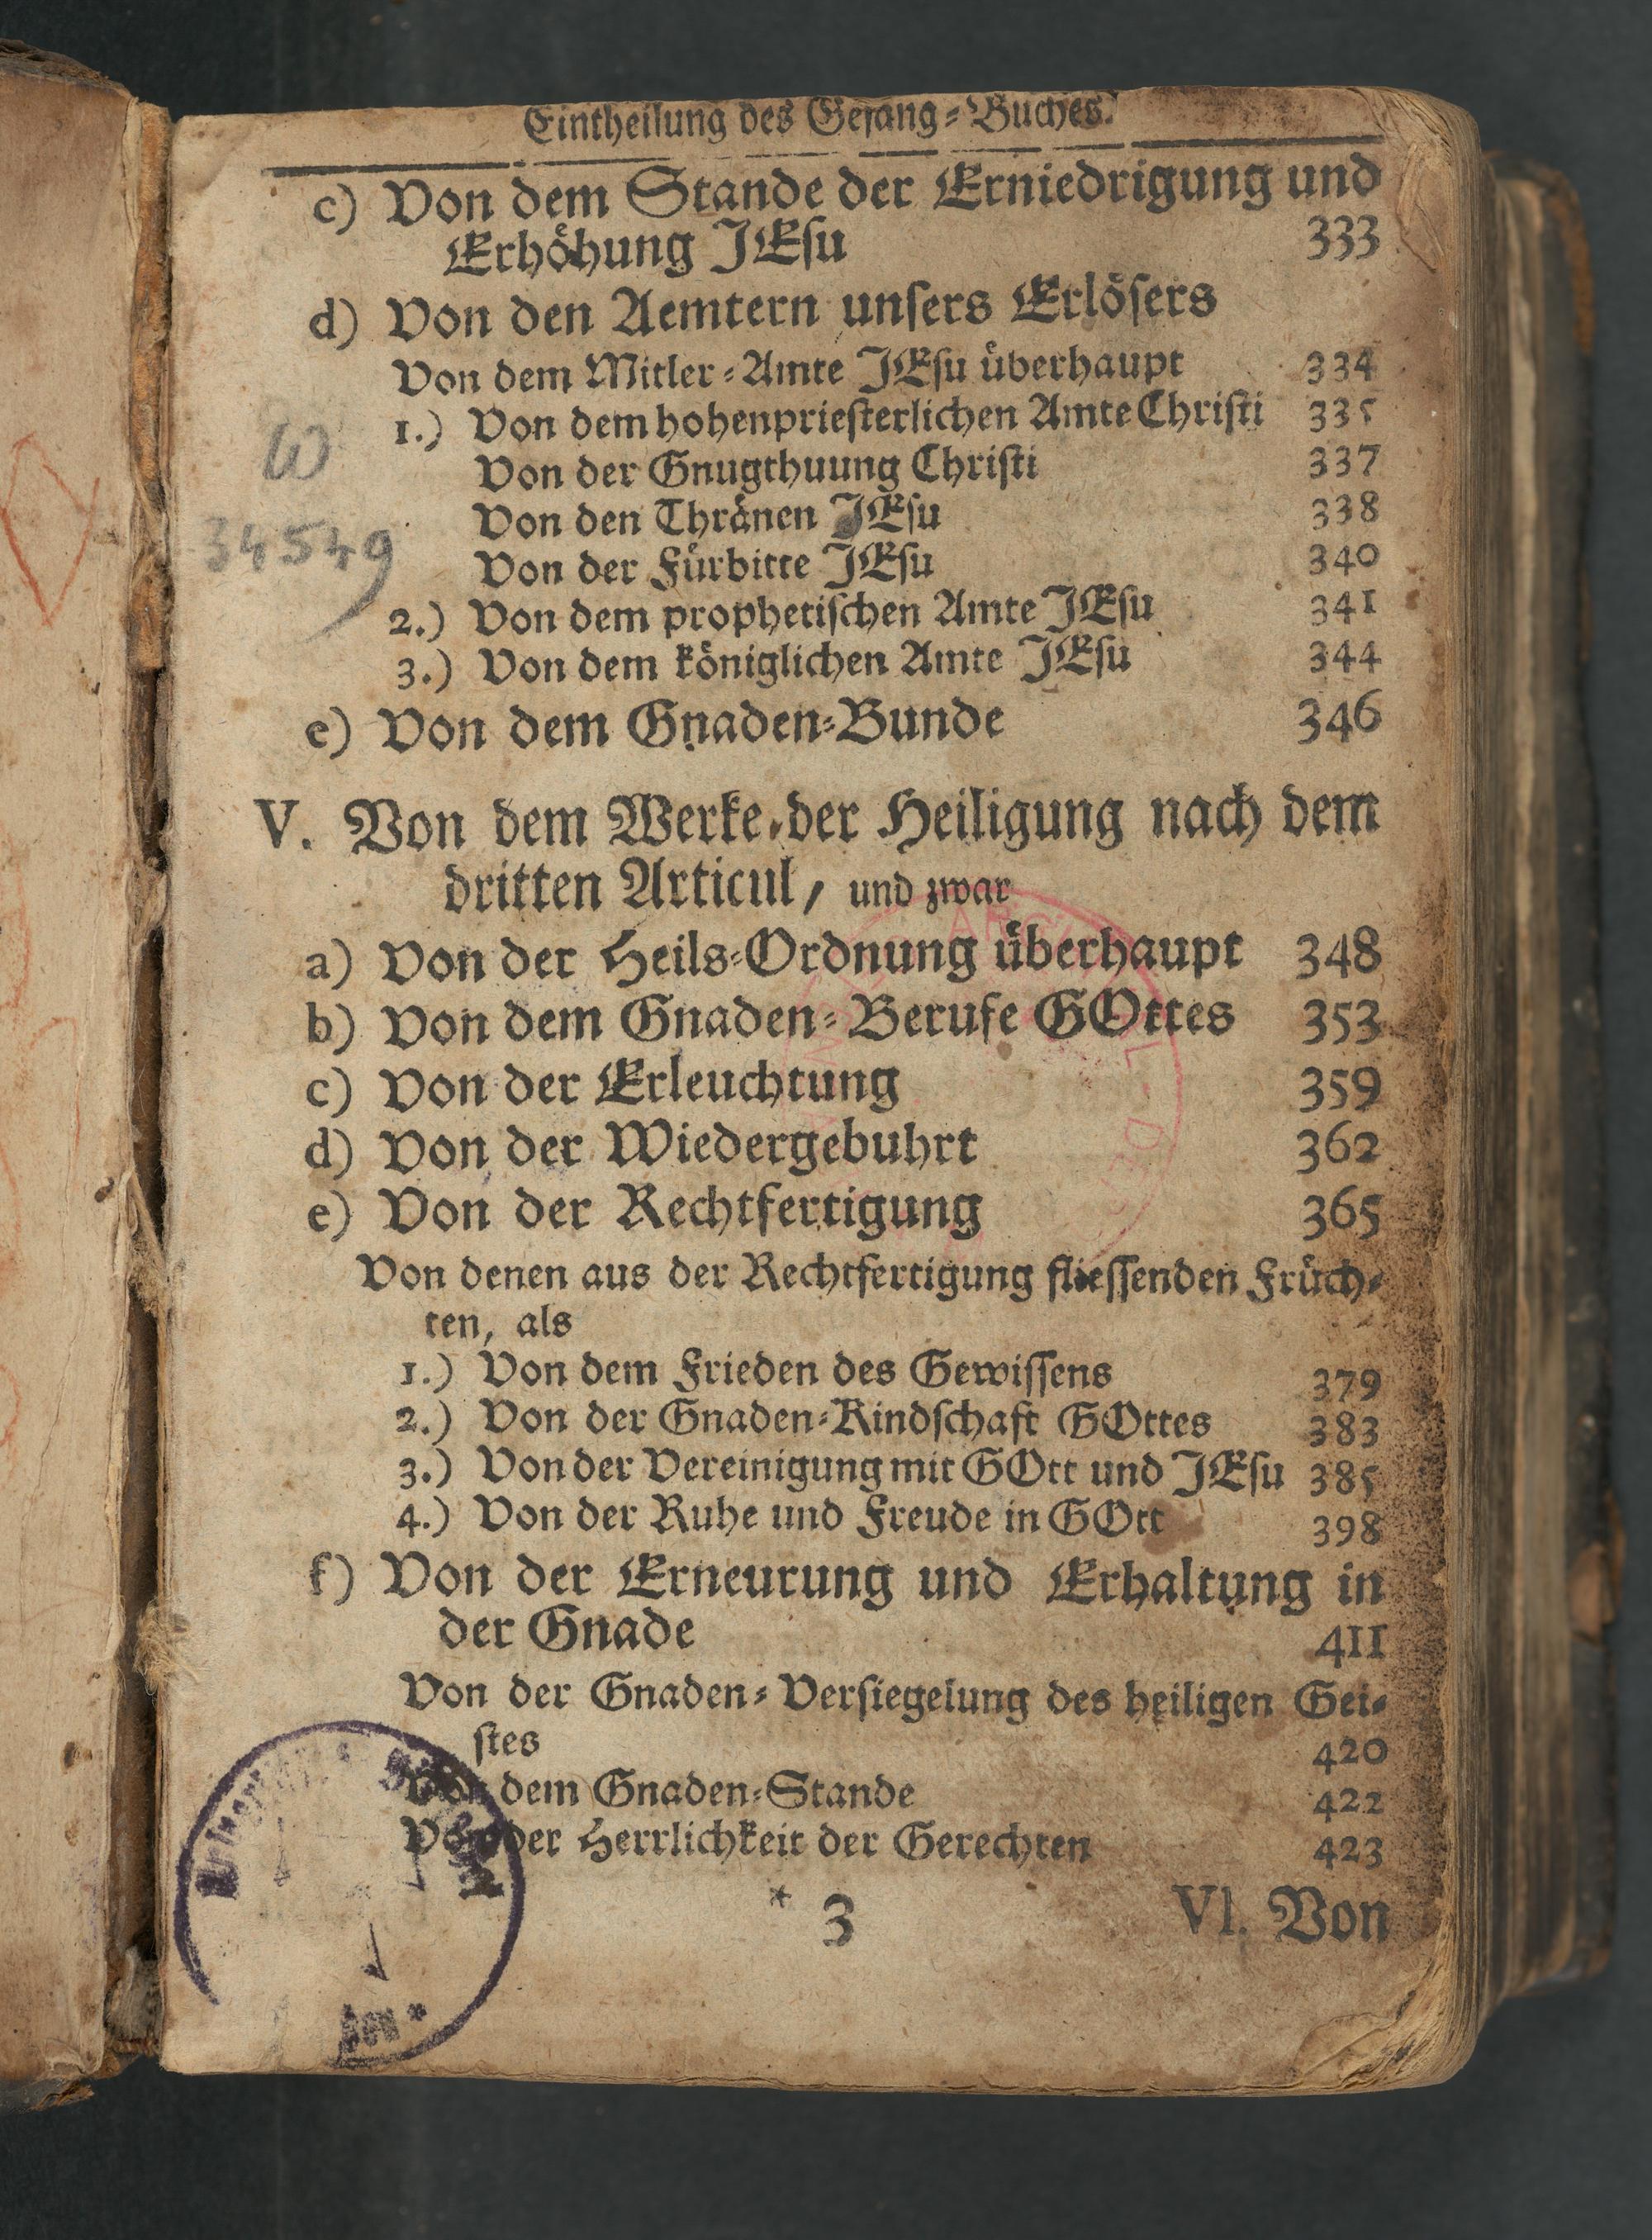 Eintheilung des Gesang-Buches.
c) Von dem Stande der Erniedrigung und
Erhöhung JEsu 333
d) Von den Aemtern unsers Erlösers
Von dem Mitler-Amte JEsu überhaupt 334
1.) Von dem hohenpriesterlichen Amte Christi 335
Von der Gnugthuung Christi 337
Von den Thränen JEsu 338
Von der Fürbitte JEsu 340
2.) Von dem prophetischen Amte JEsu 341
3.) Von dem königlichen Amte JEsu 344
e) Von dem Gnaden-Bunde 346
34549
V. Von dem Werke der Heiligung nach dem
dritten Articul, und zwar
a) Von der Heils-Ordnung überhaupt 348
b) Von dem Gnaden-Berufe GOttes 353
c) Von der Erleuchtung 359
d) Von der Wiedergebuhrt 362
e) Von der Rechtfertigung 365
Von denen aus der Rechtfertigung fliessenden Früch-
ten, als
1.) Von dem Frieden des Gewissens 379
2.) Von der Gnaden-Kindschaft GOttes 383
3.) Von der Vereinigung mit GOtt und JEsu 385
4.) Von der Ruhe und Freude in GOtt 398
f) Von der Erneurung und Erhaltung in
der Gnade 411
Von der Gnaden-Versiegelung des heiligen Gei-
stes 420
Von dem Gnaden-Stande 422
Von der Herrlichkeit der Gerechten 423
* 3 VI. Von